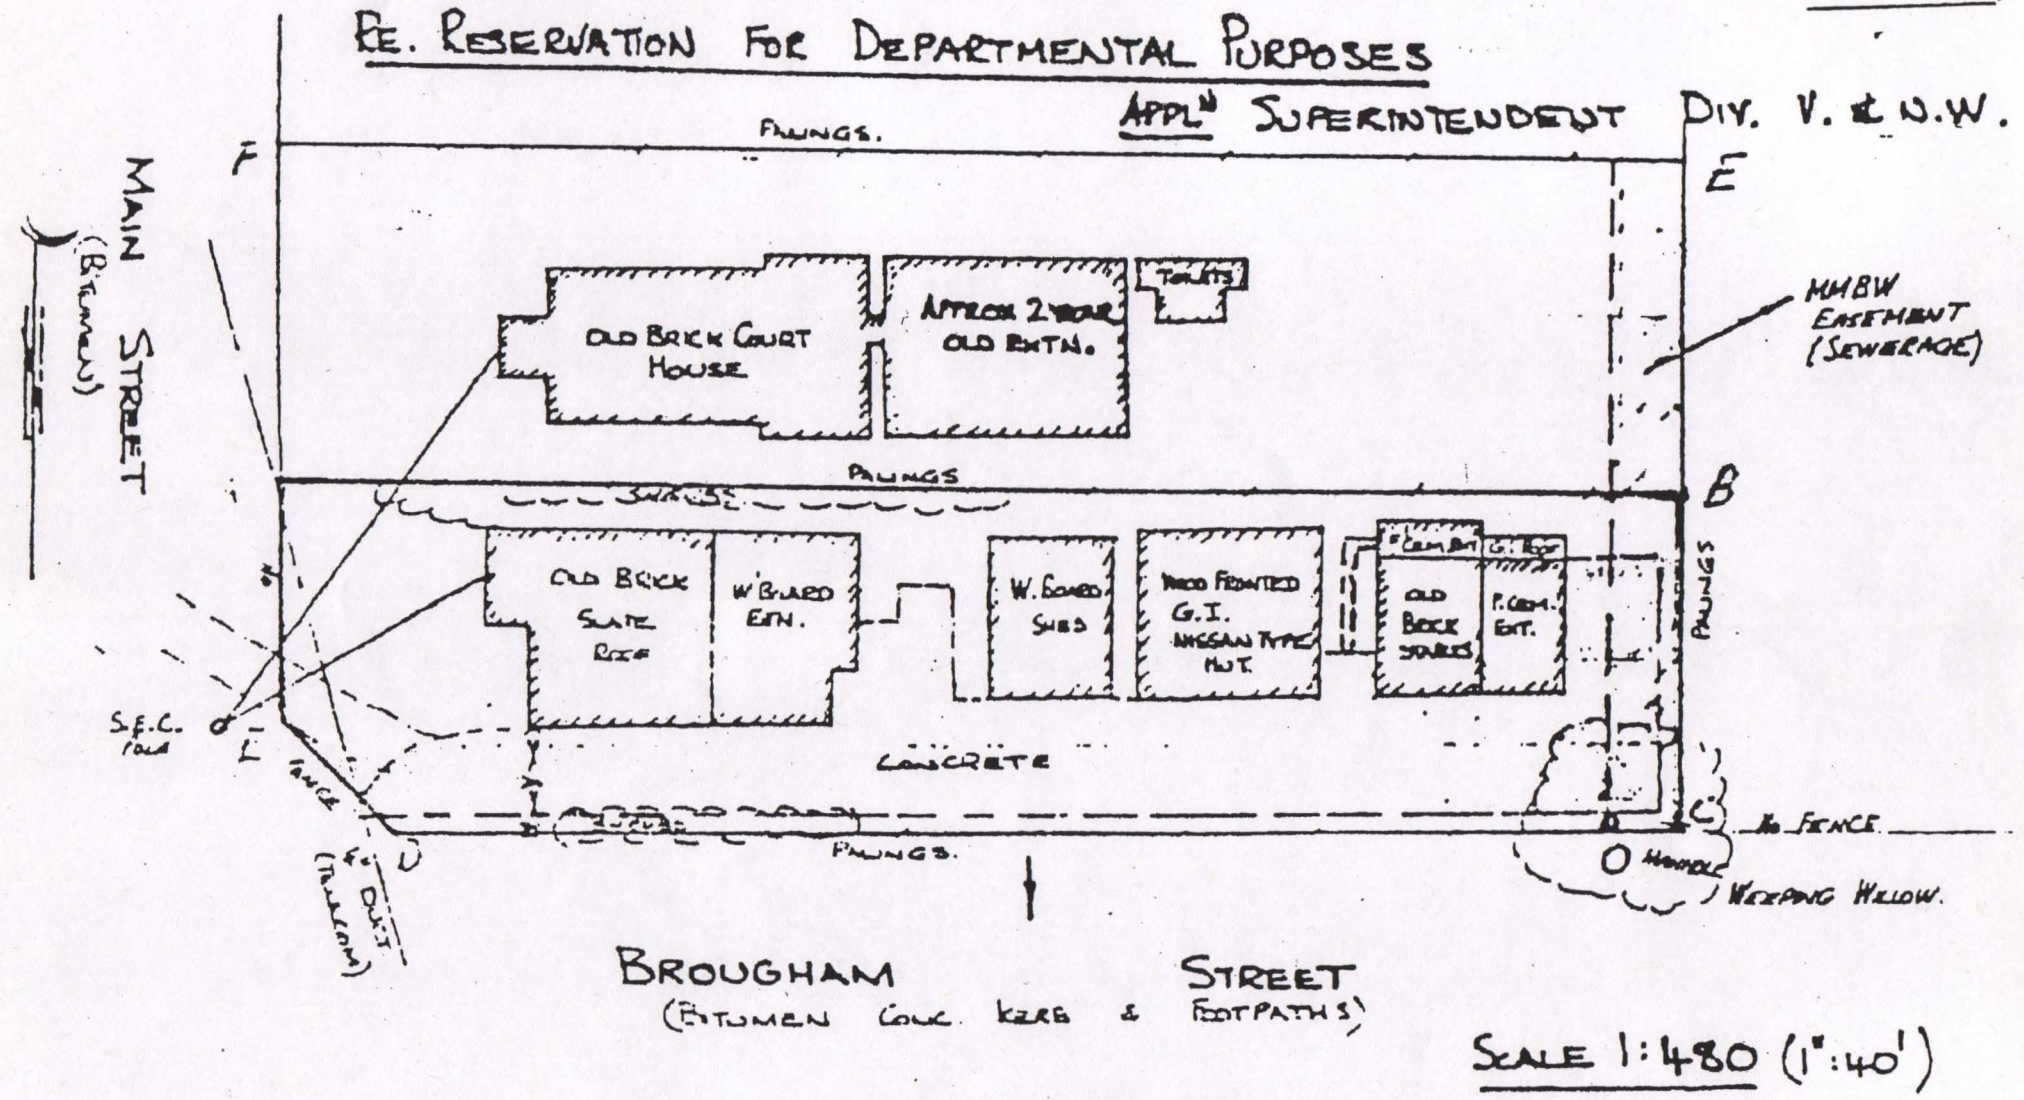 RE. RESERVATION FOR DEPARTMENTAL PURPOSES
APPLN SUPERINTENDENT DIV. V. & N.W.
PALINGS.
F
E
MAIN STREET
(BITUMEN)
MMBW
EASEMENT
(SEWERAGE)
OLD BRICK COURT
HOUSE
APPROX 2 YEAR
OLD EXTN.
TOILETS
PALINGS
B
SHRUBS
OLD BRICK
SLATE
ROOF
W'BOARD
EXTN.
W. BOARD
SHED
WOOD FRONTED
G.I.
NISSAN TYPE
HUT.
F CEMENT G.I. ROOF
OLD
BRICK
STABLES
F. CEM.
EXT.
PALINGS
No
S.E.C.
POLE
FENCE
CONCRETE
C
No FENCE
D
SHRUBS
PALINGS.
MANHOLE
WEEPING WILLOW.
4" DUCT
(TELECOM)
BROUGHAM STREET
(BITUMEN CONC. KERB & FOOTPATHS)
SCALE 1:480 (1":40')